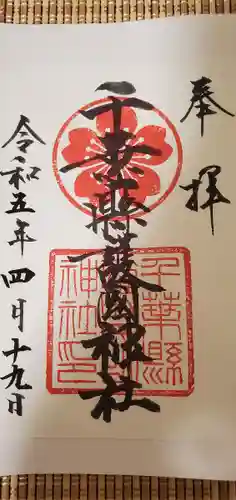 奉拝
千葉縣護國神社
千葉縣護國神社印
令和五年四月十九日